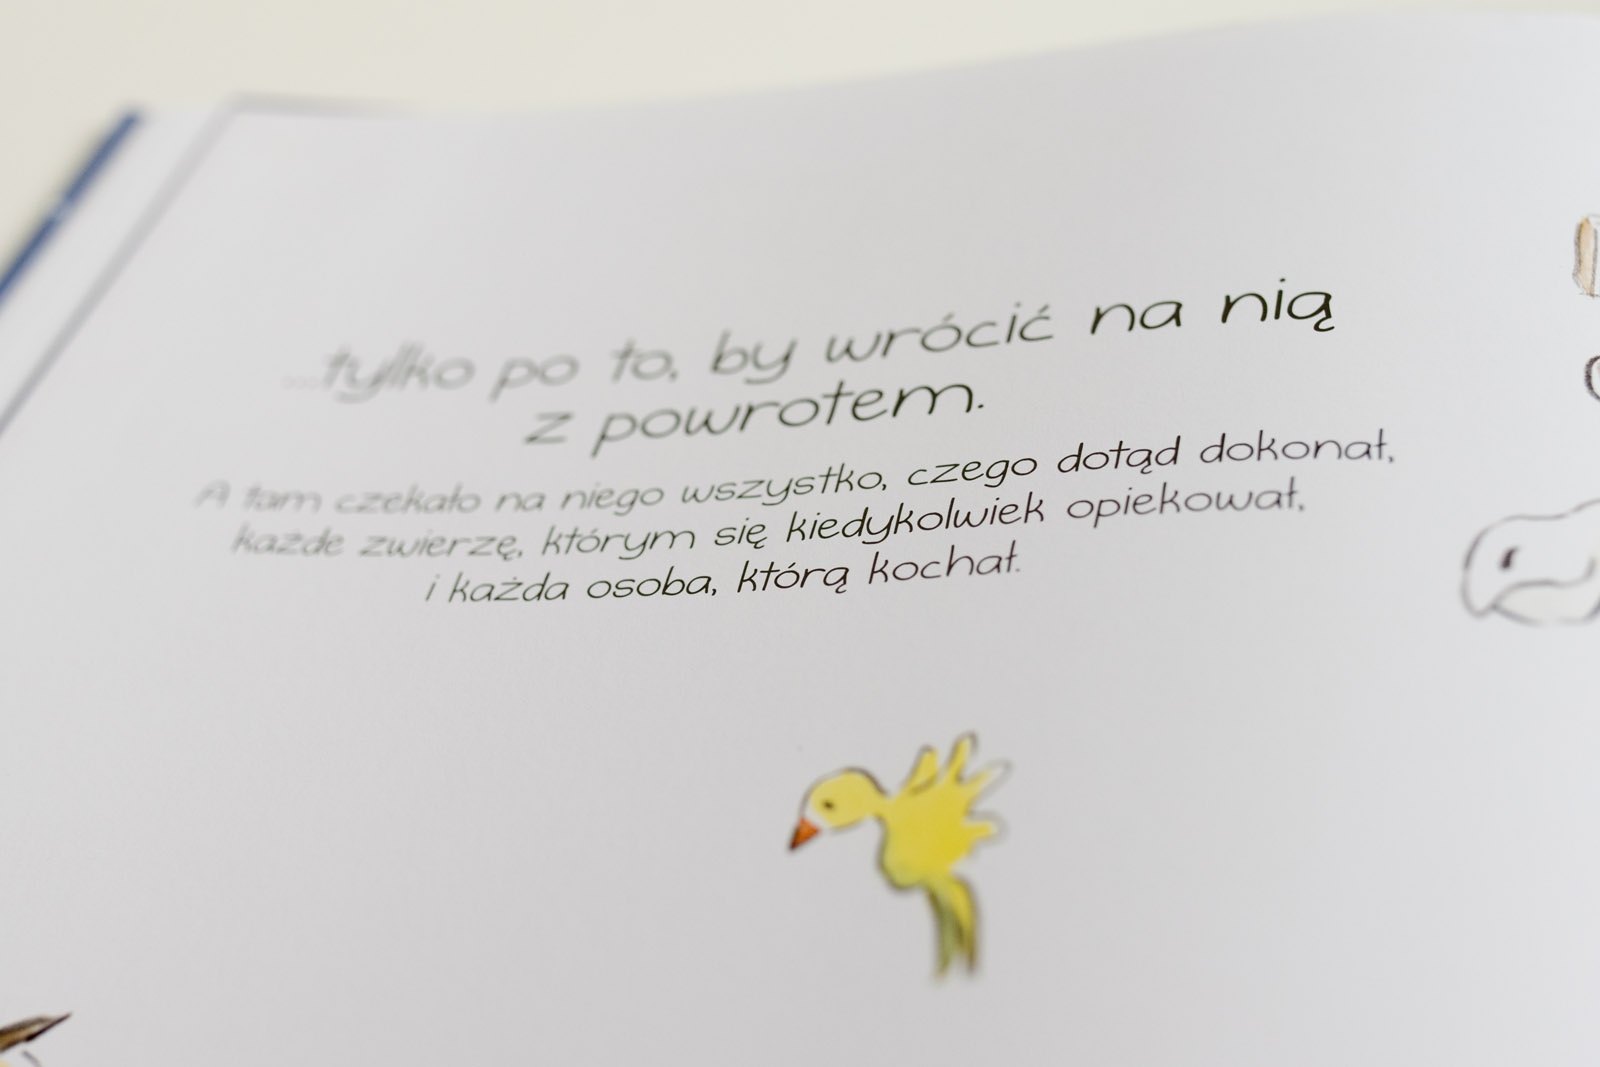 ...tylko po to, by wrócić na nią
z powrotem.
A tam czekało na niego wszystko, czego dotąd dokonał,
każde zwierzę, którym się kiedykolwiek opiekował,
i każda osoba, którą kochał.